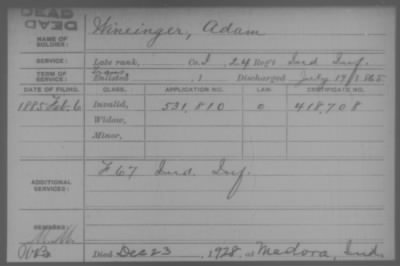 DEAD
DEAD
NAME OF SOLDIER: Wineinger, Adam
SERVICE: Late rank, Co. I, 24 Reg't Ind Inf.
TERM OF SERVICE: Enlisted , 1 Discharged July 19, 1865
DATE OF FILING. CLASS. APPLICATION NO. LAW. CERTIFICATE NO.
1885 Feb. 6 Invalid, 531,810 0 418,708
Widow,
Minor,
ADDITIONAL SERVICES: F 67 Ind. Inf.
REMARKS:
Died Dec 23, 1928, at Medora, Ind.